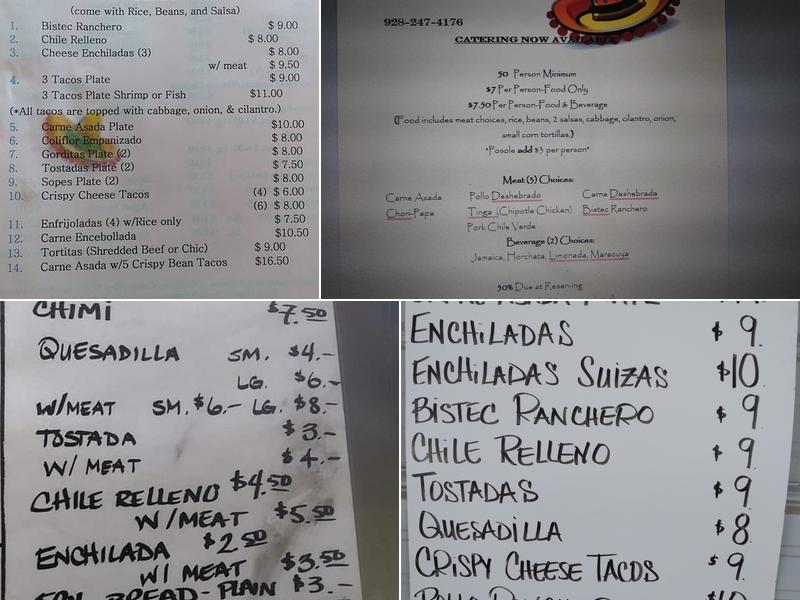 (come with Rice, Beans, and Salsa)
1. Bistec Ranchero $ 9.00
2. Chile Relleno $ 8.00
3. Cheese Enchiladas (3) $ 8.00
w/ meat $ 9.50
4. 3 Tacos Plate $ 9.00
3 Tacos Plate Shrimp or Fish $11.00
(*All tacos are topped with cabbage, onion, & cilantro.)
5. Carne Asada Plate $10.00
6. Coliflor Empanizado $ 8.00
7. Gorditas Plate (2) $ 8.00
8. Tostadas Plate (2) $ 7.50
9. Sopes Plate (2) $ 8.00
10. Crispy Cheese Tacos (4) $ 6.00
(6) $ 8.00
11. Enfrijoladas (4) w/Rice only $ 7.50
12. Carne Encebollada $10.50
13. Tortitas (Shredded Beef or Chic) $ 9.00
14. Carne Asada w/5 Crispy Bean Tacos $16.50
928-247-4176
CATERING NOW AVAILABLE
50 Person Minimum
$7 Per Person-Food Only
$7.50 Per Person-Food & Beverage
(Food includes meat choices, rice, beans, 2 salsas, cabbage, cilantro, onion,
small corn tortillas.)
*Posole add $3 per person*
Meat (3) Choices:
Carne Asada Pollo Deshebrado Carne Deshebrada
Chori-Papa Tinga (Chipotle Chicken) Bistec Ranchero
Pork Chile Verde
Beverage (2) Choices:
Jamaica, Horchata, Limonada, Maracuya
50% Due at Reserving
CHIMI $7.50
QUESADILLA SM. $4.-
LG. $6.-
W/MEAT SM. $6.- LG. $8.-
TOSTADA $3.-
W/ MEAT $4.-
CHILE RELLENO $4.50
W/MEAT $5.50
ENCHILADA $2.50
W/ MEAT $3.50
BREAD-PLAIN $3.-
ENCHILADAS $ 9.
ENCHILADAS SUIZAS $10.
BISTEC RANCHERO $ 9.
CHILE RELLENO $ 9.
TOSTADAS $ 9.
QUESADILLA $ 8.
CRISPY CHEESE TACOS $ 9.
$10